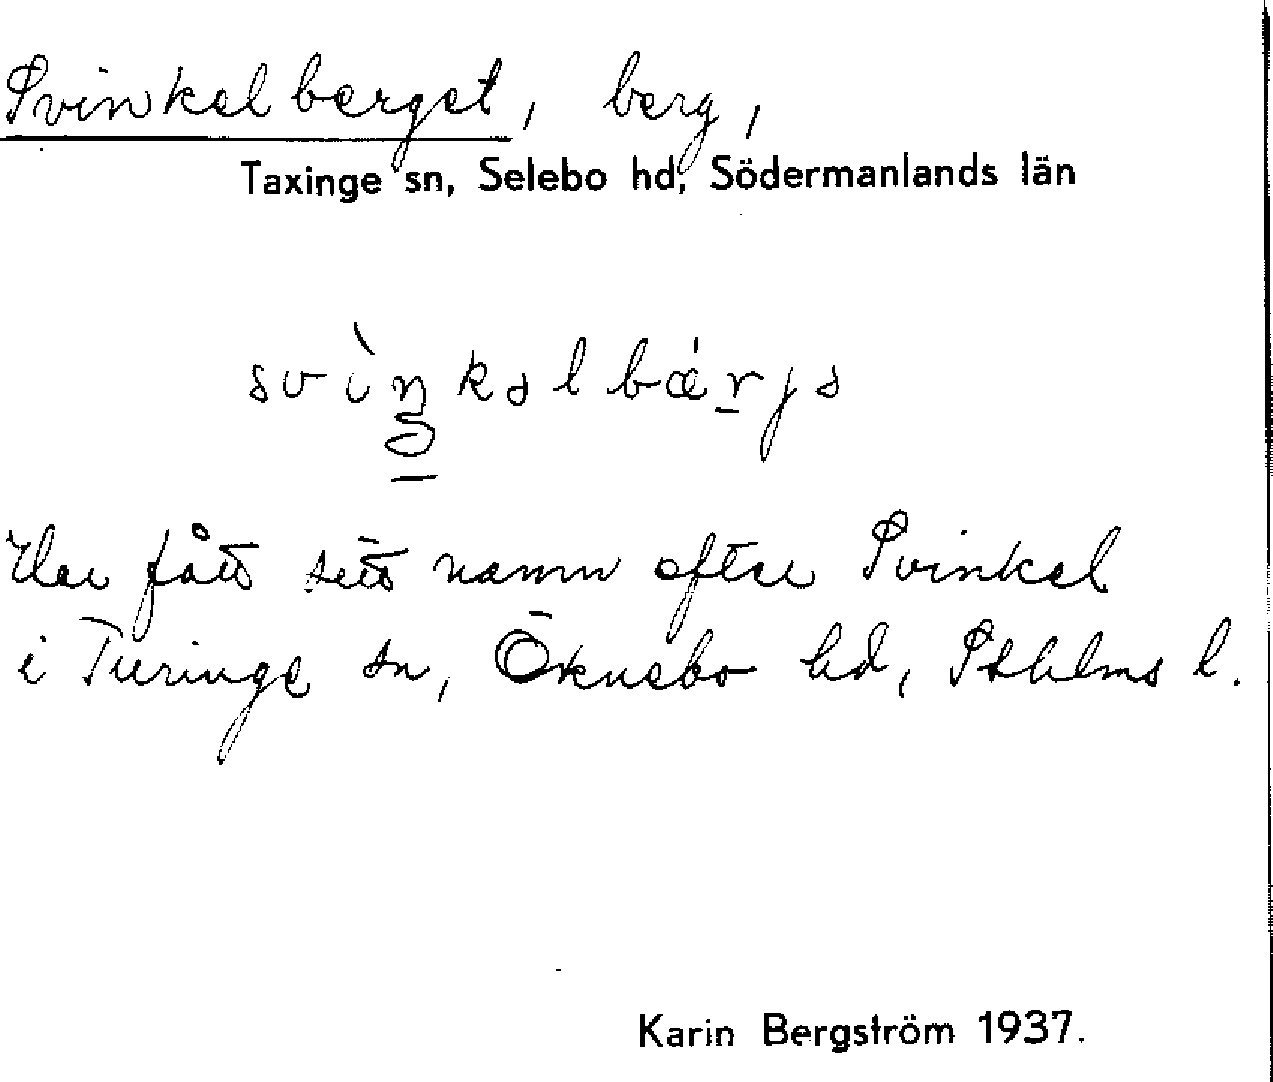 Svinkelberget, berg,
Taxinge sn, Selebo hd, Södermanlands län
svìŋkəlbærjə
Har fått sitt namn efter Svinkel
i Turinge sn, Öknebo hd, Sthlms l.
Karin Bergström 1937.